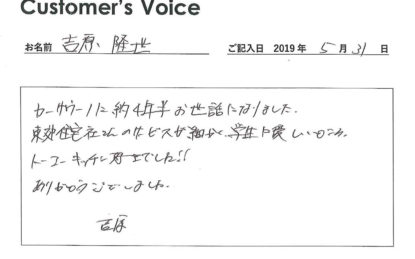 Customer's Voice
お名前 吉原 隆世 ご記入日 2019年 5月 31日
カーサウーノに約4年半お世話になりました。
東建住宅社さんのサービスが細かく、学生に優しいところ
トーコーキッチン
でした!!
ありがとうございました。
吉原